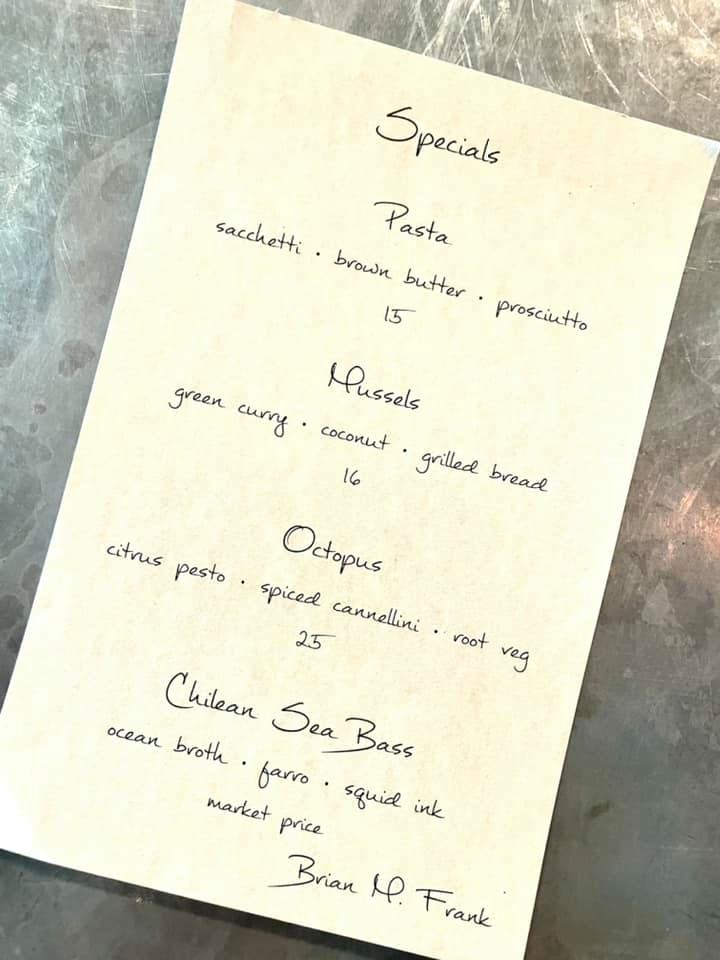 Specials
Pasta
sacchetti · brown butter · prosciutto
15
Mussels
green curry · coconut · grilled bread
16
Octopus
citrus pesto · spiced cannellini · root veg
25
Chilean Sea Bass
ocean broth · farro · squid ink
market price
Brian M. Frank